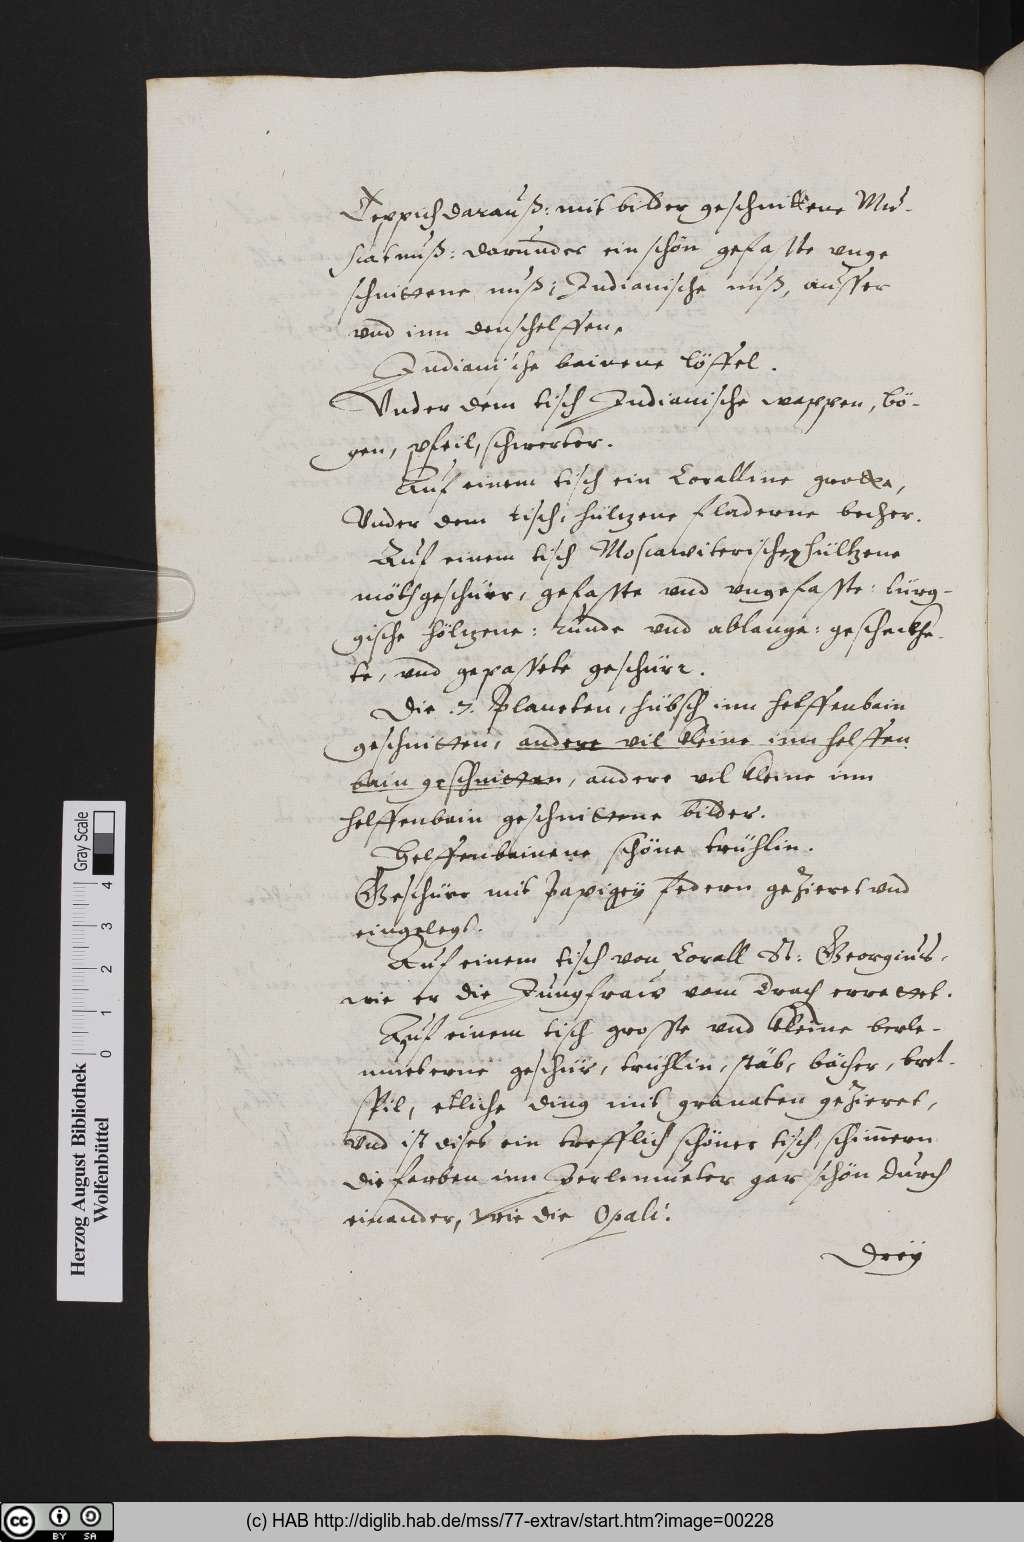 Teppich darauß: mit bilder geschnittene Mu-
scatnuß: darunder ein schön gefaste unge
schnittene nuß: Indianische nuß, ausser
vnd inn den schelffen.
Indianische bainene löffel.
Vnder dem tisch Indianische wappen, bö-
gen, pfeil, schwerter.
Auf einem tisch ein Coralline grotta,
Vnder dem tisch, hültzene fladerne becher.
Auf einem tisch Moscawiterische hültzene
möthgeschürr, gefasste vnd vngefasste: türg-
gische höltzene: runde vnd ablange: gescheckhe-
te, vnd gepassete geschürr.
Die .7. Planeten, hübsch inn helffenbain
geschnitten, andere vil kleine inn helffen
bain geschnitten, andere vil kleine inn
helffenbain geschnittene bilder.
Helffenbainene schöne trühlin.
Geschürr mit Papigeÿ federn gezieret vnd
eingelegt.
Auf einem tisch von Corall St: Georgius,
wie er die Jungfraw vom Drach errettet.
Auf einem tisch grosse vnd kleine berle-
mueterne geschür, truhlin, stäb, bächer, bret-
spil, etliche ding mit granaten gezieret,
vnd ist dises ein trefflich schöner tisch, schimmern
die farben inn Perlenmueter gar schön durch
einander, wie die Opali.
Dreÿ
Herzog August Bibliothek
Wolfenbüttel
Gray Scale
0 1 2 3 4
(c) HAB http://diglib.hab.de/mss/77-extrav/start.htm?image=00228
cc BY SA